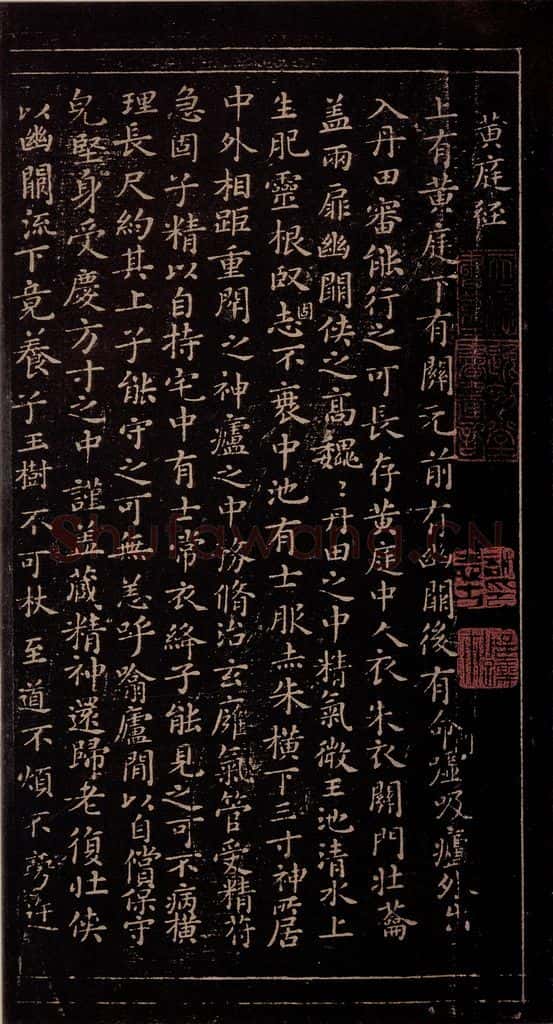 黄庭经
上有黄庭下有關元前有幽闕後有命嘘吸廬外出
入丹田審能行之可長存黄庭中人衣朱衣關門壯籥
盖兩扉幽闕侠之髙巍〻丹田之中精氣微玉池清水上
生肥靈根堅固志不衰中池有士服赤朱横下三寸神所居
中外相距重閉之神廬之中務脩治玄癰氣管受精符
急固子精以自持宅中有士常衣絳子能見之可不病横
理長尺約其上子能守之可無恙呼噏廬間以自償保守
皃堅身受慶方寸之中謹盖藏精神還歸老復壯侠
以幽闕流下竟養子玉樹不可杖至道不煩不
Shufawang.CN